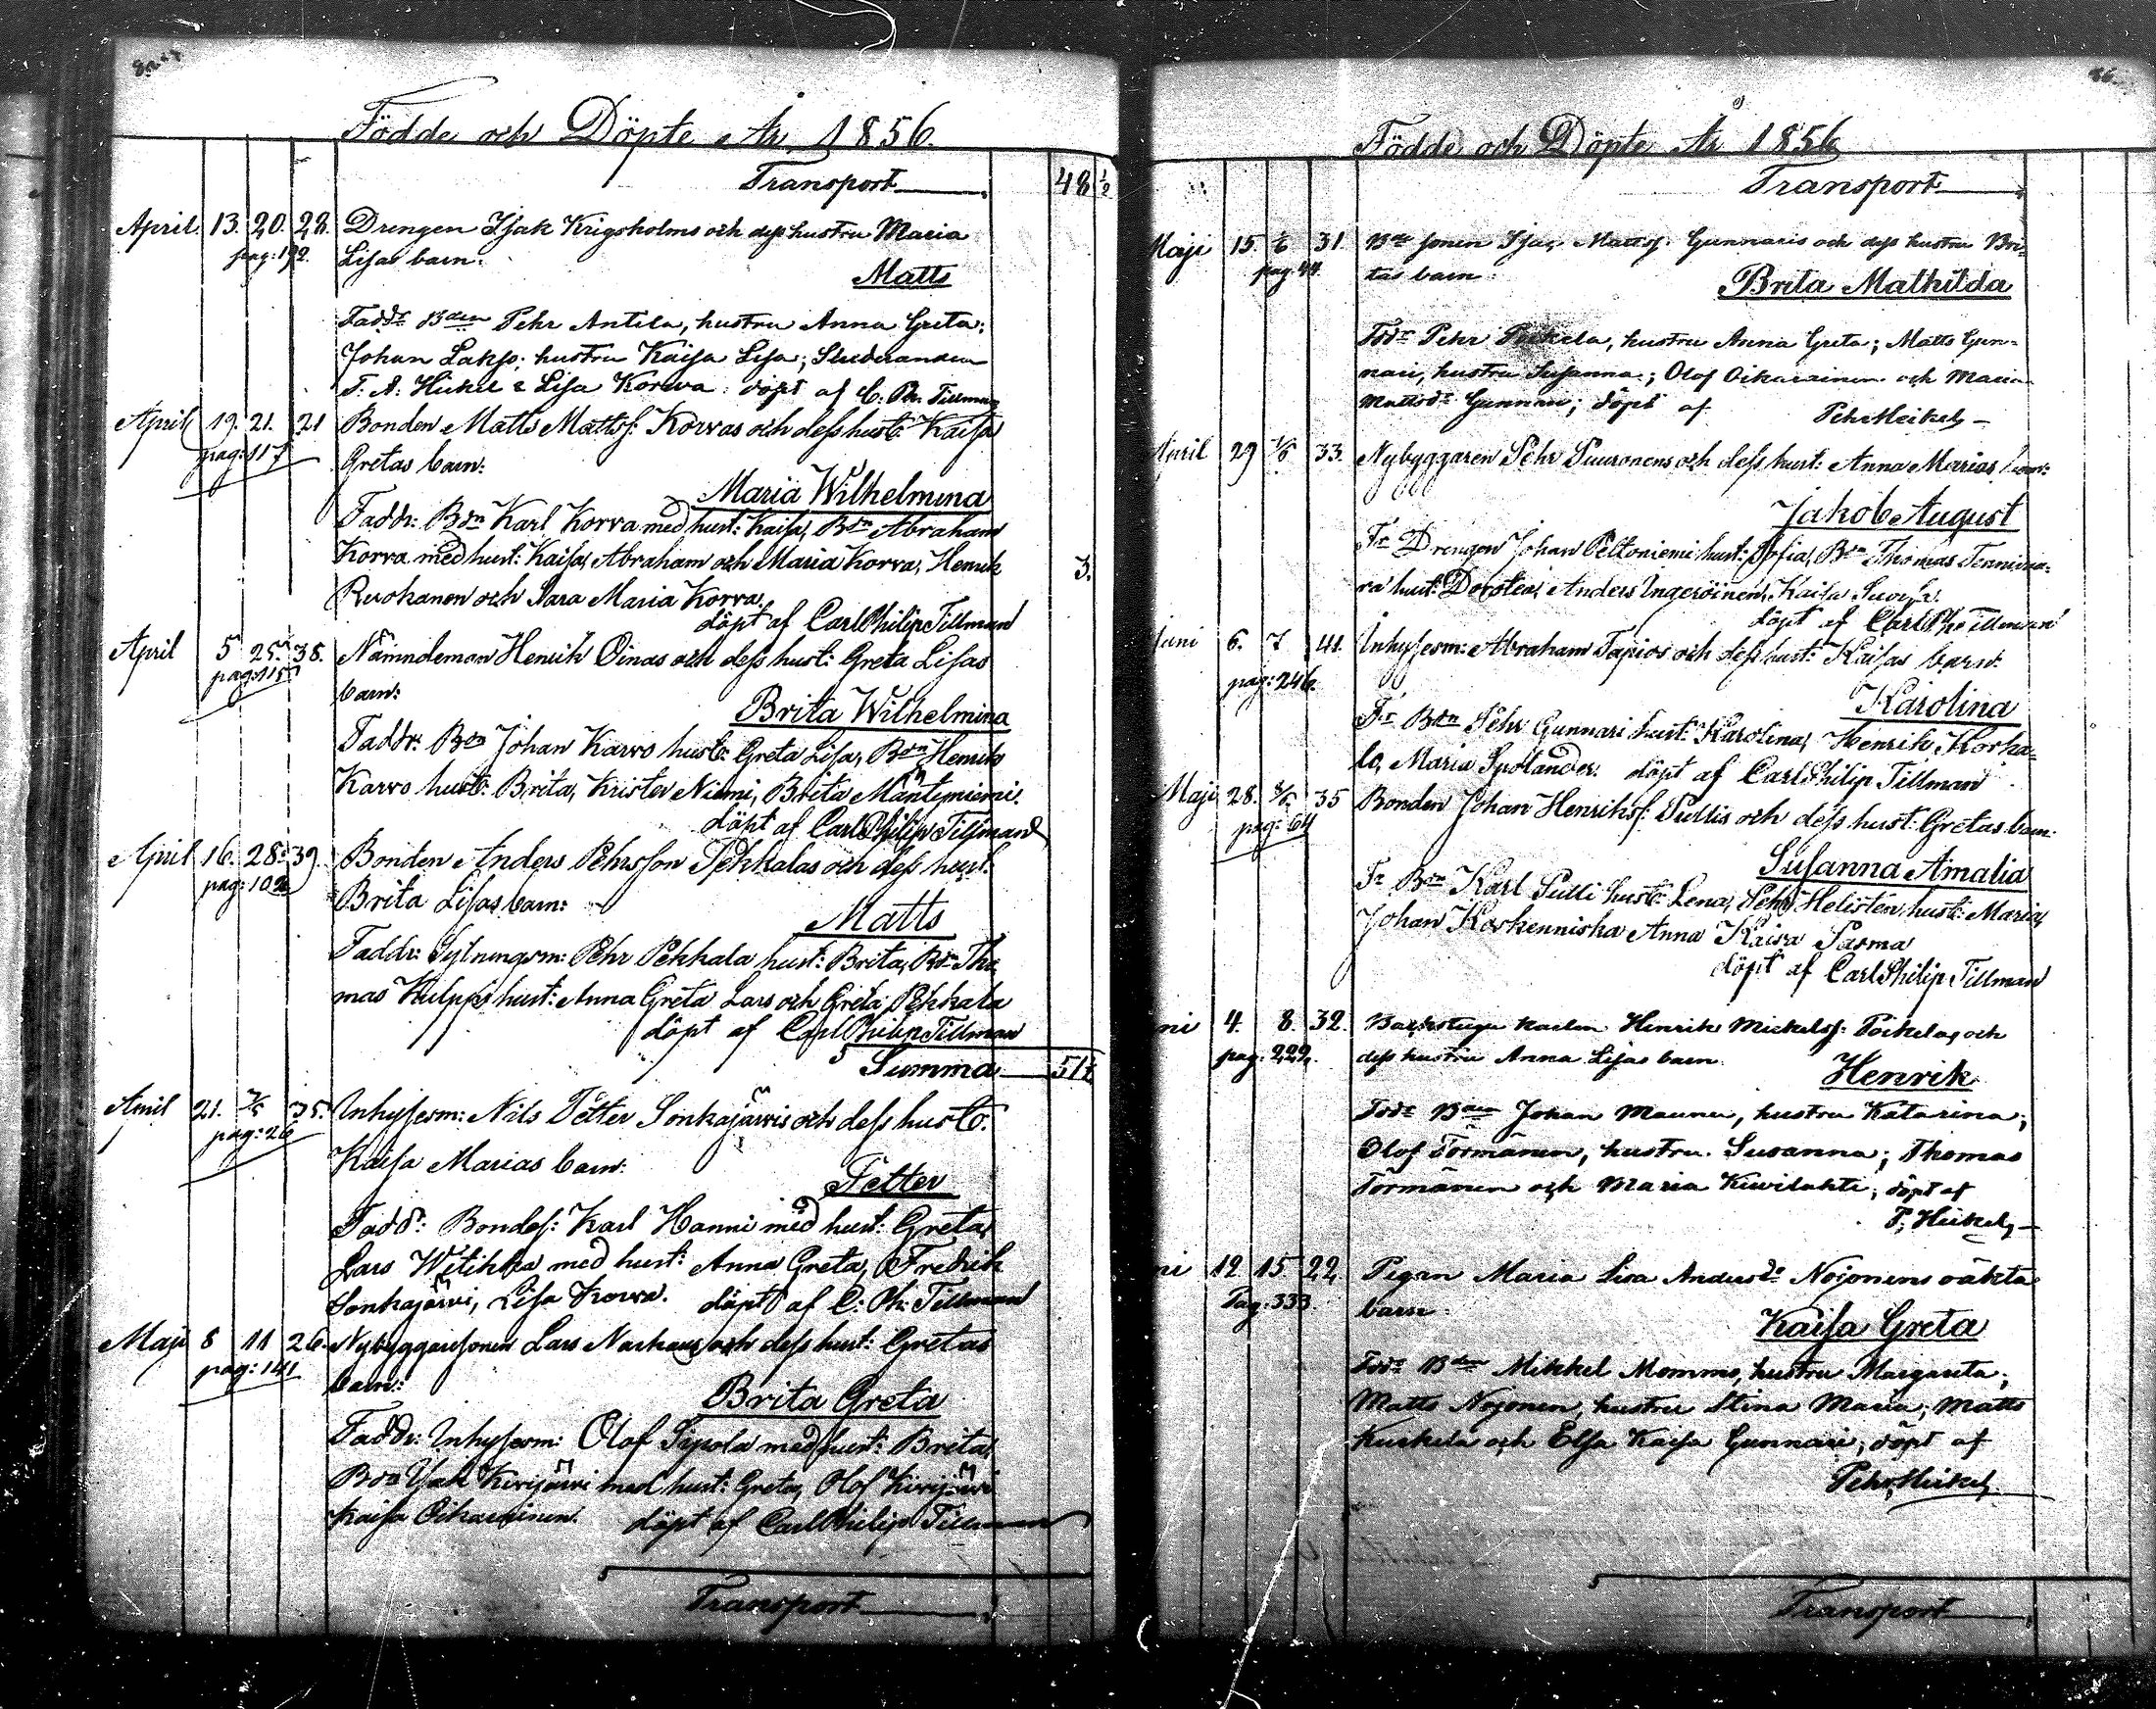 Födde och Döpte År 1856.
Transport 48 ½
April 13. 20. 28. Drengen Isak Krigsholms och dess hustru Maria
pag: 192. Lisas barn:
Matts
Faddr Bden Pehr Antila, hustru Anna Greta;
Johan Lakso; hustru Kaisa Lisa; Studeranden
T. A. Heikel & Lisa Korwa. döpt af C. Ph. Tillman
April 19. 21. 21 Bonden Matts Mattss: Korvas och dess hust: Kaisa
pag: 117 Gretas barn:
Maria Wilhelmina
Faddr: Bdn Karl Korva med hust: Kaisa, Bdn Abraham
Korva med hust: Kaisa, Abraham och Maria Korva, Henrik 3.
Ruokanen och Sara Maria Korva.
döpt af Carl Philip Tillman
April 5 25. 38. Nämndeman Henrik Oinas och dess hust: Greta Lisas
pag: 115 barn:
Brita Wilhelmina
Faddr: Bdn Johan Karvo hust: Greta Lisa, Bdn Henrik
Karvo hust: Brita, Krister Niemi, Brita Mäntyniemi.
döpt af Carl Philip Tillman
April 16. 28. 39. Bonden Anders Pehrsson Pekkalas och dess hust:
pag: 102 Brita Lisas barn:
Matts
Faddr: Sytningsm: Pehr Pekkala hust: Brita, Bdn Tho
mas Kulppi hust: Anna Greta Lars och Greta Pekkala
döpt af Carl Philip Tillman
Summa 51½
April 21. 2/5 35. Inhysesm: Nils Petter Sonkajärvis och dess hust:
pag: 26 Kaisa Marias barn:
Petter
Faddr: Bondes: Karl Hanni med hust: Greta,
Lars Witikka med hust: Anna Greta, Fredrik
Sonkajärvi, Lisa Korva. döpt af C: Ph: Tillman
Maji 8 11 26. Nybyggaresonen Lars Narkaus och dess hust: Gretas
pag: 141 barn:
Brita Greta
Faddr: Inhysesm: Olof Sipola med hust: Brita,
Bdn Isak Kivijärvi med hust: Greta, Olof Kivijärvi
Kaisa Oikarainen. döpt af Carl Philip Tillman
Transport
Födde och Döpte År 1856
Transport
Maji 15. 1/6 31. Bde sonen Isac Mattss: Gunnaris och dess hustru Bri-
pag. 44. tas barn:
Brita Mathilda
Fddr Pehr Poikela, hustru Anna Greta; Matts Gun-
nari, hustru Susanna; Olof Oikarainen och Maria
Mattsdr Gunnari; döpt af Pehr Heikel
April 29 1/6 33. Nybyggaren Pehr Puuronens och dess hust: Anna Marias barn:
Jakob August
Fr Drengen Johan Peltoniemi hust: Sofia, Bdn Thomas Tennivaa-
ra hust: Dorotea, Anders Ingeröinen, Kaisa
döpt af Carl Ph: Tillman
Juni 6. 7 41. Inhysesm: Abraham Tapios och dess hust: Kaisas barn:
pag: 246. Karolina
Fr Bdn Pehr Gunnari hust: Karolina, Henrik Korka-
lo, Maria Spolander. döpt af Carl Philip Tillman
Maji 28. 8/6. 35 Bonden Johan Henrikss: Pullis och dess hust: Gretas barn:
pag: 64
Susanna Amalia
Fr Bdn Karl Pulli hust: Lena, Pehr Helisten hust: Maria,
Johan Koskenniska Anna Kaisa Sarma
döpt af Carl Philip Tillman
ni 4. 8. 32. Backstugu karlen Henrik Mickelss: Poikelas och
pag: 229. dess hustru Anna Lisas barn.
Henrik
Fddr Bden Johan Maunu, hustru Katarina;
Olof Törmänen, hustru Susanna; Thomas
Törmänen och Maria Kivilahti; döpt af
P. Heikel
ni 12 15 22 Pigan Maria Lisa Andersdr Nojonens oäkta
Pag: 333 barn:
Kaisa Greta
Fddr Bden Mikkel Mommo, hustru Margareta;
Matts Nojonen, hustru Stina Maria; Matts
Kurkela och Elsa Kaisa Gunnari; döpt af
Pehr Heikel
Transport